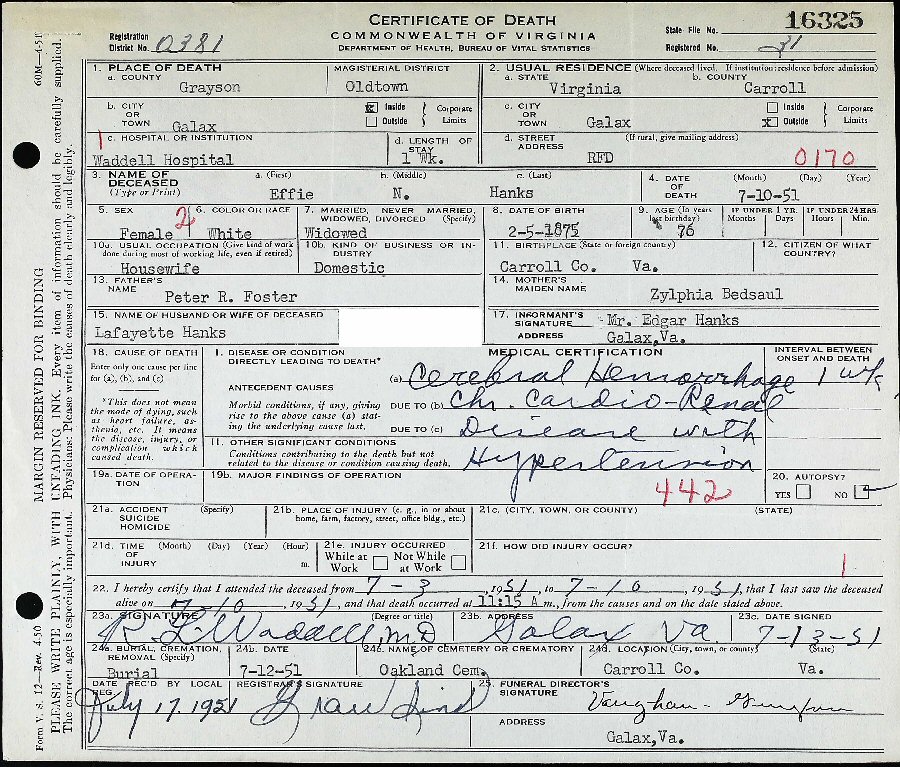 CERTIFICATE OF DEATH
COMMONWEALTH OF VIRGINIA
DEPARTMENT OF HEALTH, BUREAU OF VITAL STATISTICS
Registration District No. 0381
State File No. 16325
Registered No. 31
1. PLACE OF DEATH
a. COUNTY
Grayson
MAGISTERIAL DISTRICT
Oldtown
2. USUAL RESIDENCE (Where deceased lived. If institution: residence before admission)
a. STATE
Virginia
b. COUNTY
Carroll
b. CITY OR TOWN Galax
Inside Outside } Corporate Limits
c. CITY OR TOWN Galax
Inside Outside } Corporate Limits
c. HOSPITAL OR INSTITUTION
Waddell Hospital
d. LENGTH OF STAY
1 Wk.
d. STREET ADDRESS (If rural, give mailing address)
RFD
0170
3. NAME OF DECEASED (Type or Print)
a. (First)
Effie
b. (Middle)
N.
c. (Last)
Hanks
4. DATE OF DEATH (Month) (Day) (Year)
7-10-51
5. SEX
Female
2
6. COLOR OR RACE
White
7. MARRIED, NEVER MARRIED, WIDOWED, DIVORCED (Specify)
Widowed
8. DATE OF BIRTH
2-5-1875
9. AGE (In years last birthday)
76
IF UNDER 1 YR.
Months Days
IF UNDER 24 HRS.
Hours Min.
10a. USUAL OCCUPATION (Give kind of work done during most of working life, even if retired)
Housewife
10b. KIND OF BUSINESS OR INDUSTRY
Domestic
11. BIRTHPLACE (State or foreign country)
Carroll Co. Va.
12. CITIZEN OF WHAT COUNTRY?
13. FATHER'S NAME
Peter R. Foster
14. MOTHER'S MAIDEN NAME
Zylphia Bedsaul
15. NAME OF HUSBAND OR WIFE OF DECEASED
Lafayette Hanks
17. INFORMANT'S SIGNATURE Mr. Edgar Hanks
ADDRESS Galax,Va.
18. CAUSE OF DEATH
Enter only one cause per line for (a), (b), and (c)
*This does not mean the mode of dying, such as heart failure, asthenia, etc. It means the disease, injury, or complication which caused death.
MEDICAL CERTIFICATION
INTERVAL BETWEEN ONSET AND DEATH
I. DISEASE OR CONDITION DIRECTLY LEADING TO DEATH*
(a) Cerebral Hemorrhage 1 wk
ANTECEDENT CAUSES
Morbid conditions, if any, giving rise to the above cause (a) stating the underlying cause last.
DUE TO (b) Chr. Cardio-Renal
DUE TO (c) Disease with
II. OTHER SIGNIFICANT CONDITIONS
Conditions contributing to the death but not related to the disease or condition causing death.
Hypertension
19a. DATE OF OPERATION
19b. MAJOR FINDINGS OF OPERATION
442
20. AUTOPSY?
YES NO
21a. ACCIDENT SUICIDE HOMICIDE (Specify)
21b. PLACE OF INJURY (e. g., in or about home, farm, factory, street, office bldg., etc.)
21c. (CITY, TOWN, OR COUNTY) (STATE)
21d. TIME OF INJURY (Month) (Day) (Year) (Hour) m.
21e. INJURY OCCURRED
While at Work Not While at Work
21f. HOW DID INJURY OCCUR?
1
22. I hereby certify that I attended the deceased from 7-3, 1951, to 7-10, 1951, that I last saw the deceased
alive on 7-10, 1951, and that death occurred at 11:15 A m., from the causes and on the date stated above.
23a. SIGNATURE (Degree or title)
R L Waddell, M.D
23b. ADDRESS
Galax Va.
23c. DATE SIGNED
7-13-51
24a. BURIAL, CREMATION, REMOVAL (Specify)
Burial
24b. DATE
7-12-51
24c. NAME OF CEMETERY OR CREMATORY
Oakland Cem.
24d. LOCATION (City, town, or county) (State)
Carroll Co. Va.
DATE REC'D BY LOCAL REG.
July 17, 1951
REGISTRAR'S SIGNATURE
25. FUNERAL DIRECTOR'S SIGNATURE
Vaughan-
ADDRESS
Galax,Va.
Form V. S. 12—Rev. 4-50
60M—4-51
MARGIN RESERVED FOR BINDING
PLEASE WRITE PLAINLY, WITH UNFADING INK. Every item of information should be carefully supplied.
The correct age is especially important. Physicians: Please write the causes of death clearly and legibly.